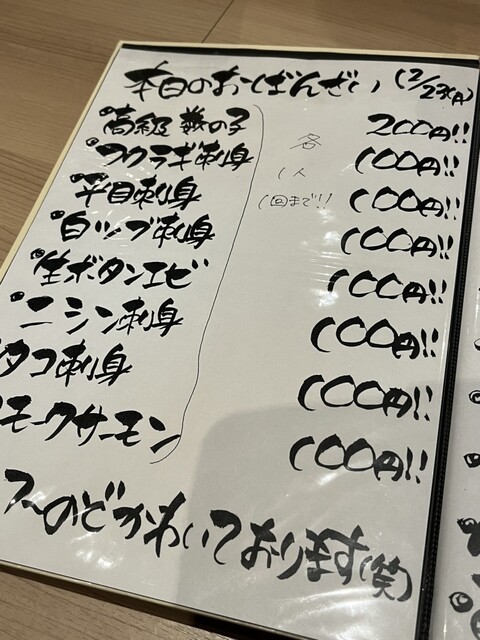 本日のおばんざい 12/23(月)
・高級 数の子 200円!!
・フクラギ刺身 100円!!
・平目刺身 100円!!
・白ツブ刺身 100円!!
・生ボタンエビ 100円!!
・ニシン刺身 100円!!
タコ刺身 100円!!
モークサーモン 100円!!
各
1人
1回まで!!
のどかわいております(笑)